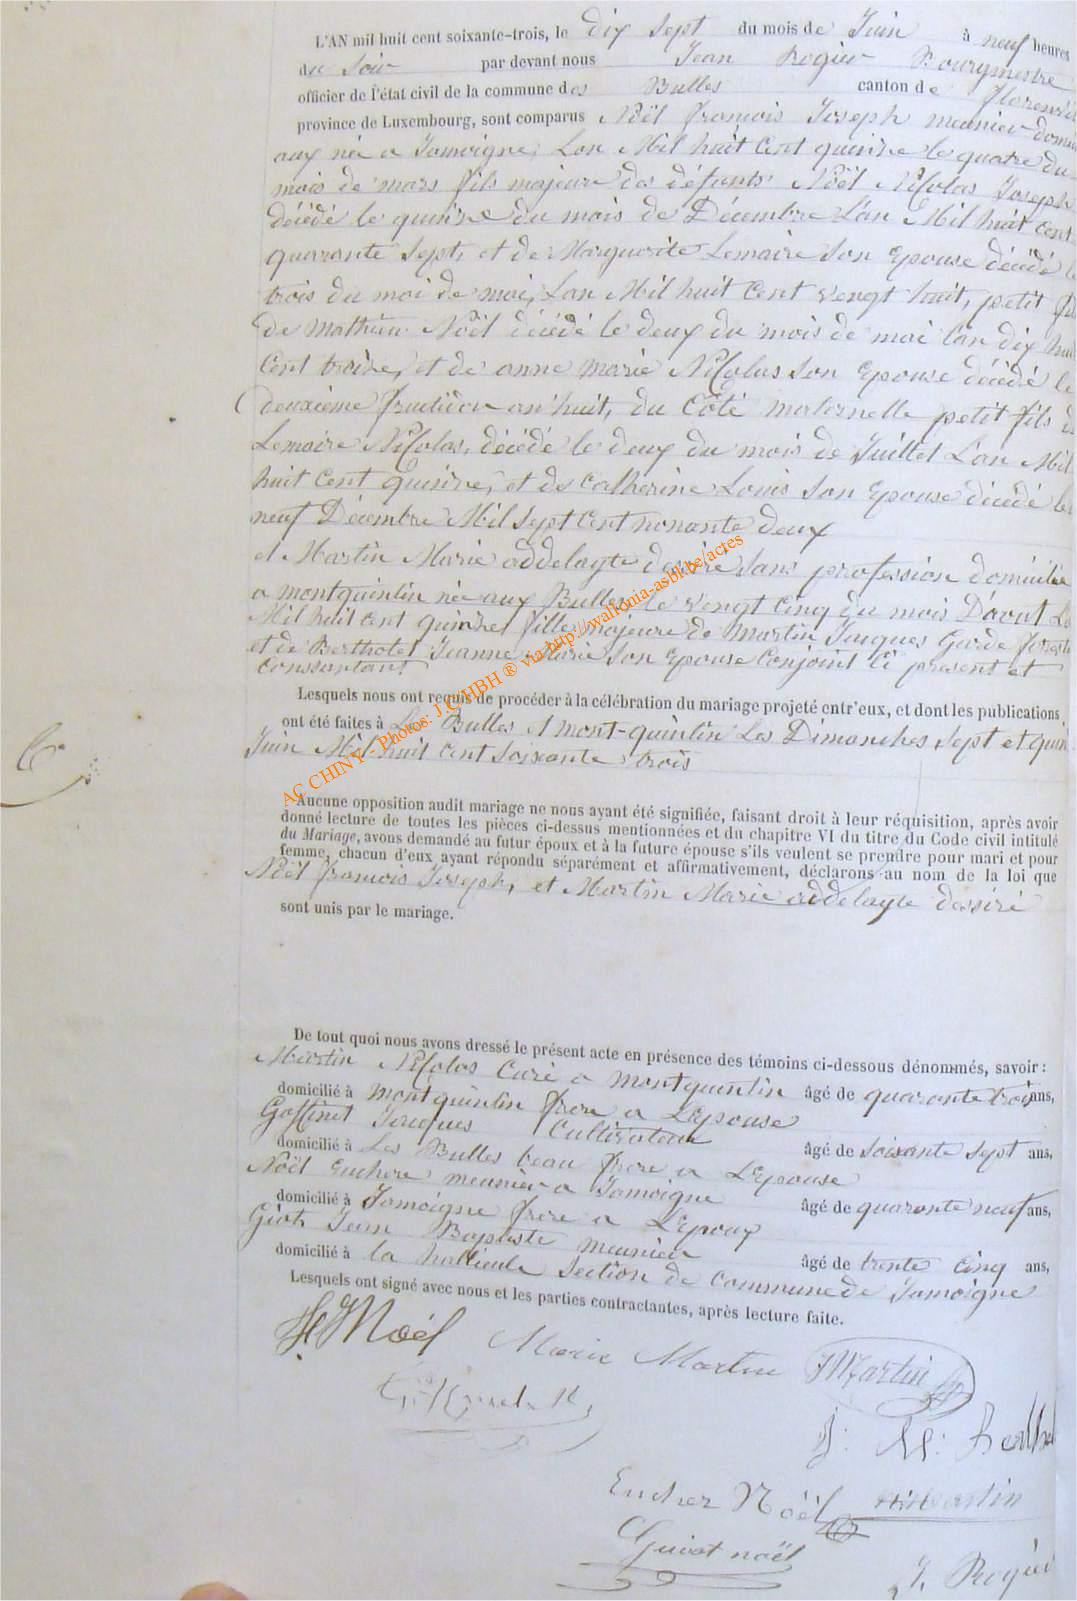 L'AN mil huit cent soixante-trois, le dix sept du mois de Juin à neuf heures
du soir par devant nous Jean Rogier Bourgmestre
officier de l'état civil de la commune des Bulles canton de Florenville
province de Luxembourg, sont comparus Noël francois Joseph meunier domici
aux née a Jamoigne, Lan Mil huit Cent quinze le quatre du
mois de mars fils majeure des défunts Noël Nicolas Joseph
décédé le quinze du mois de Décembre L'an Mil huit Cent
quarante sept, et de Marguerite Lemaire Son Epouse décédé le
trois du moi de mai, Lan Mil huit Cent vengt huit, petit fils
de Mathieu Noël décédé le deux du mois de mai l'an dix huit
Cent treize, et de anne marie Nicolas Son Epouse décédé le
deuxième fructidor an huit, du Côté maternelle petit fils de
Lemaire Nicolas, décédé le deux du mois de Juillet L'an Mil
huit Cent Quinze, et de Catherine Louis Son Epouse décédé le
neuf Décembre Mil Sept Cent nonante deux
et Martin Marie addelayte desiré Sans profession domicilié
a montquintin née aux Bulles le vengt Cinq du mois D'aout La
Mil huit Cent quinze, fille majeure de Martin Jacques Garde foresti
et de Bertholet Jeanne Marie Son Epouse Conjoint Ci present et
Conssantant
Lesquels nous ont requis de procéder à la célébration du mariage projeté entr'eux, et dont les publications
ont été faites à Les Bulles et mont-quintin Les Dimanches Sept et quin
Juin Mil huit Cent Soixante trois
Aucune opposition audit mariage ne nous ayant été signifiée, faisant droit à leur réquisition, après avoir
donné lecture de toutes les pièces ci-dessus mentionnées et du chapitre VI du titre du Code civil intitulé
du Mariage, avons demandé au futur époux et à la future épouse s'ils veulent se prendre pour mari et pour
femme, chacun d'eux ayant répondu séparément et affirmativement, déclarons au nom de la loi que
Noël francois Joseph, et Martin Marie addelayte dessiré
sont unis par le mariage.
De tout quoi nous avons dressé le présent acte en présence des témoins ci-dessous dénommés, savoir :
Martin Nicolas Curé a montquentin âgé de quarante trois ans,
domicilié à montquintin frere a L'Epouse
Goffinet Jacques Cultivateur âgé de soixante sept ans,
domicilié à Les Bulles beau frere a L'Epouse
Noël Euchere meunier a Jamoigne âgé de quarante neuf ans,
domicilié à Jamoigne frere a L'Epoux
Giot Jean Baptiste meunier âgé de trente Cinq ans,
domicilié à la hailleule Section de Commune de Jamoigne
Lesquels ont signé avec nous et les parties contractantes, après lecture faite.
Noël Marie Martin JMartin
J: M: Berthol
Eucher Noël Martin
noël
J. Rogier
AC CHINY - Photos: J.C HBH ® via http://wallonia-asbl.be/actes